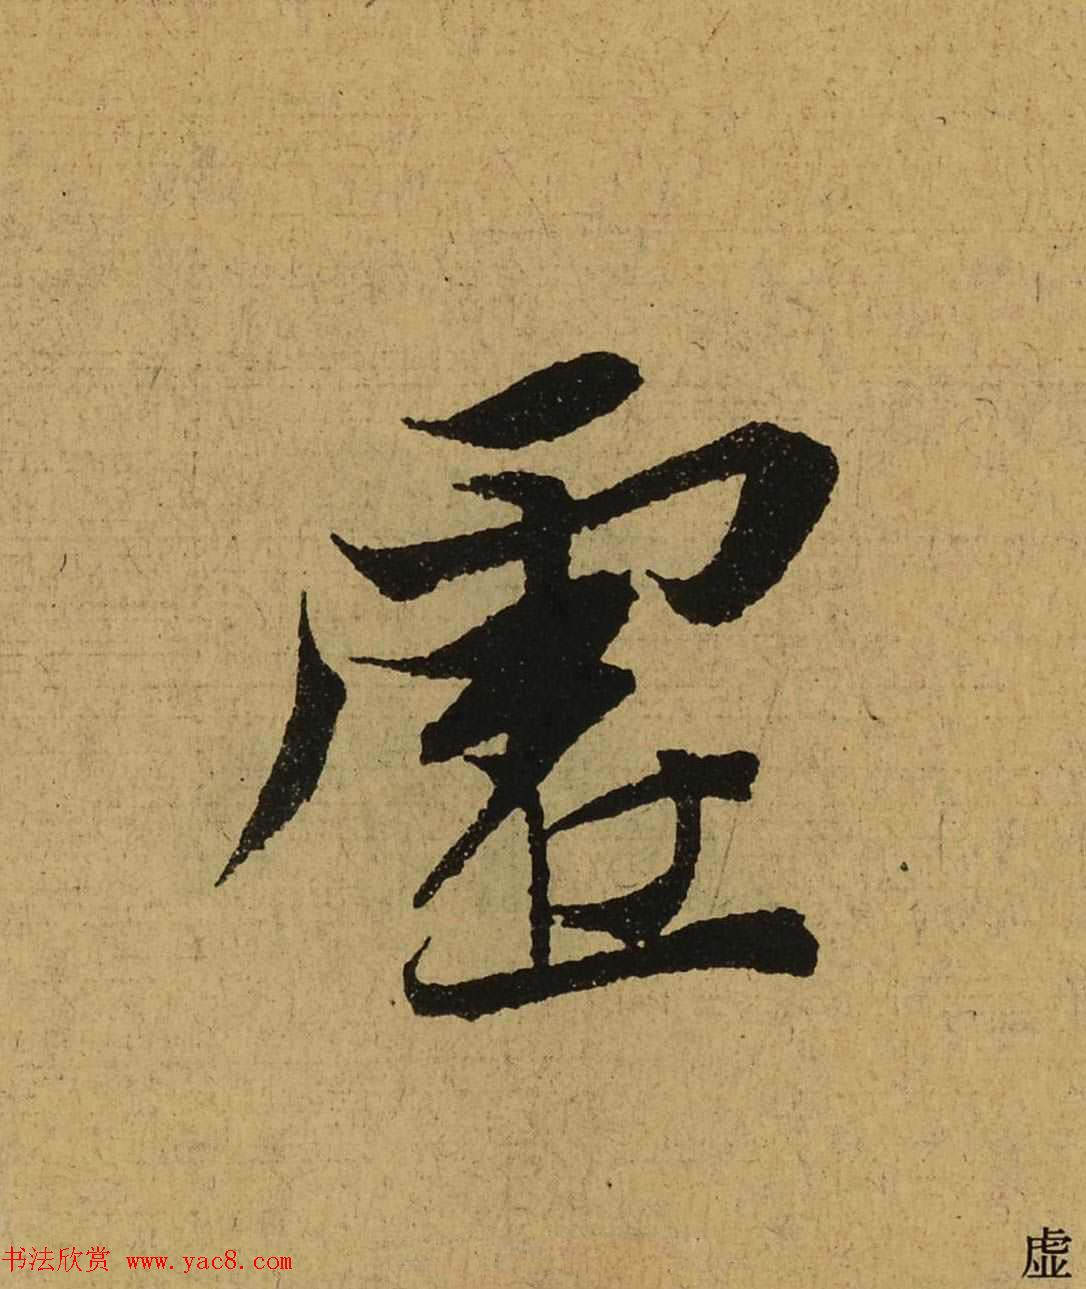 虛
书法欣赏 www.yac8.com
虚